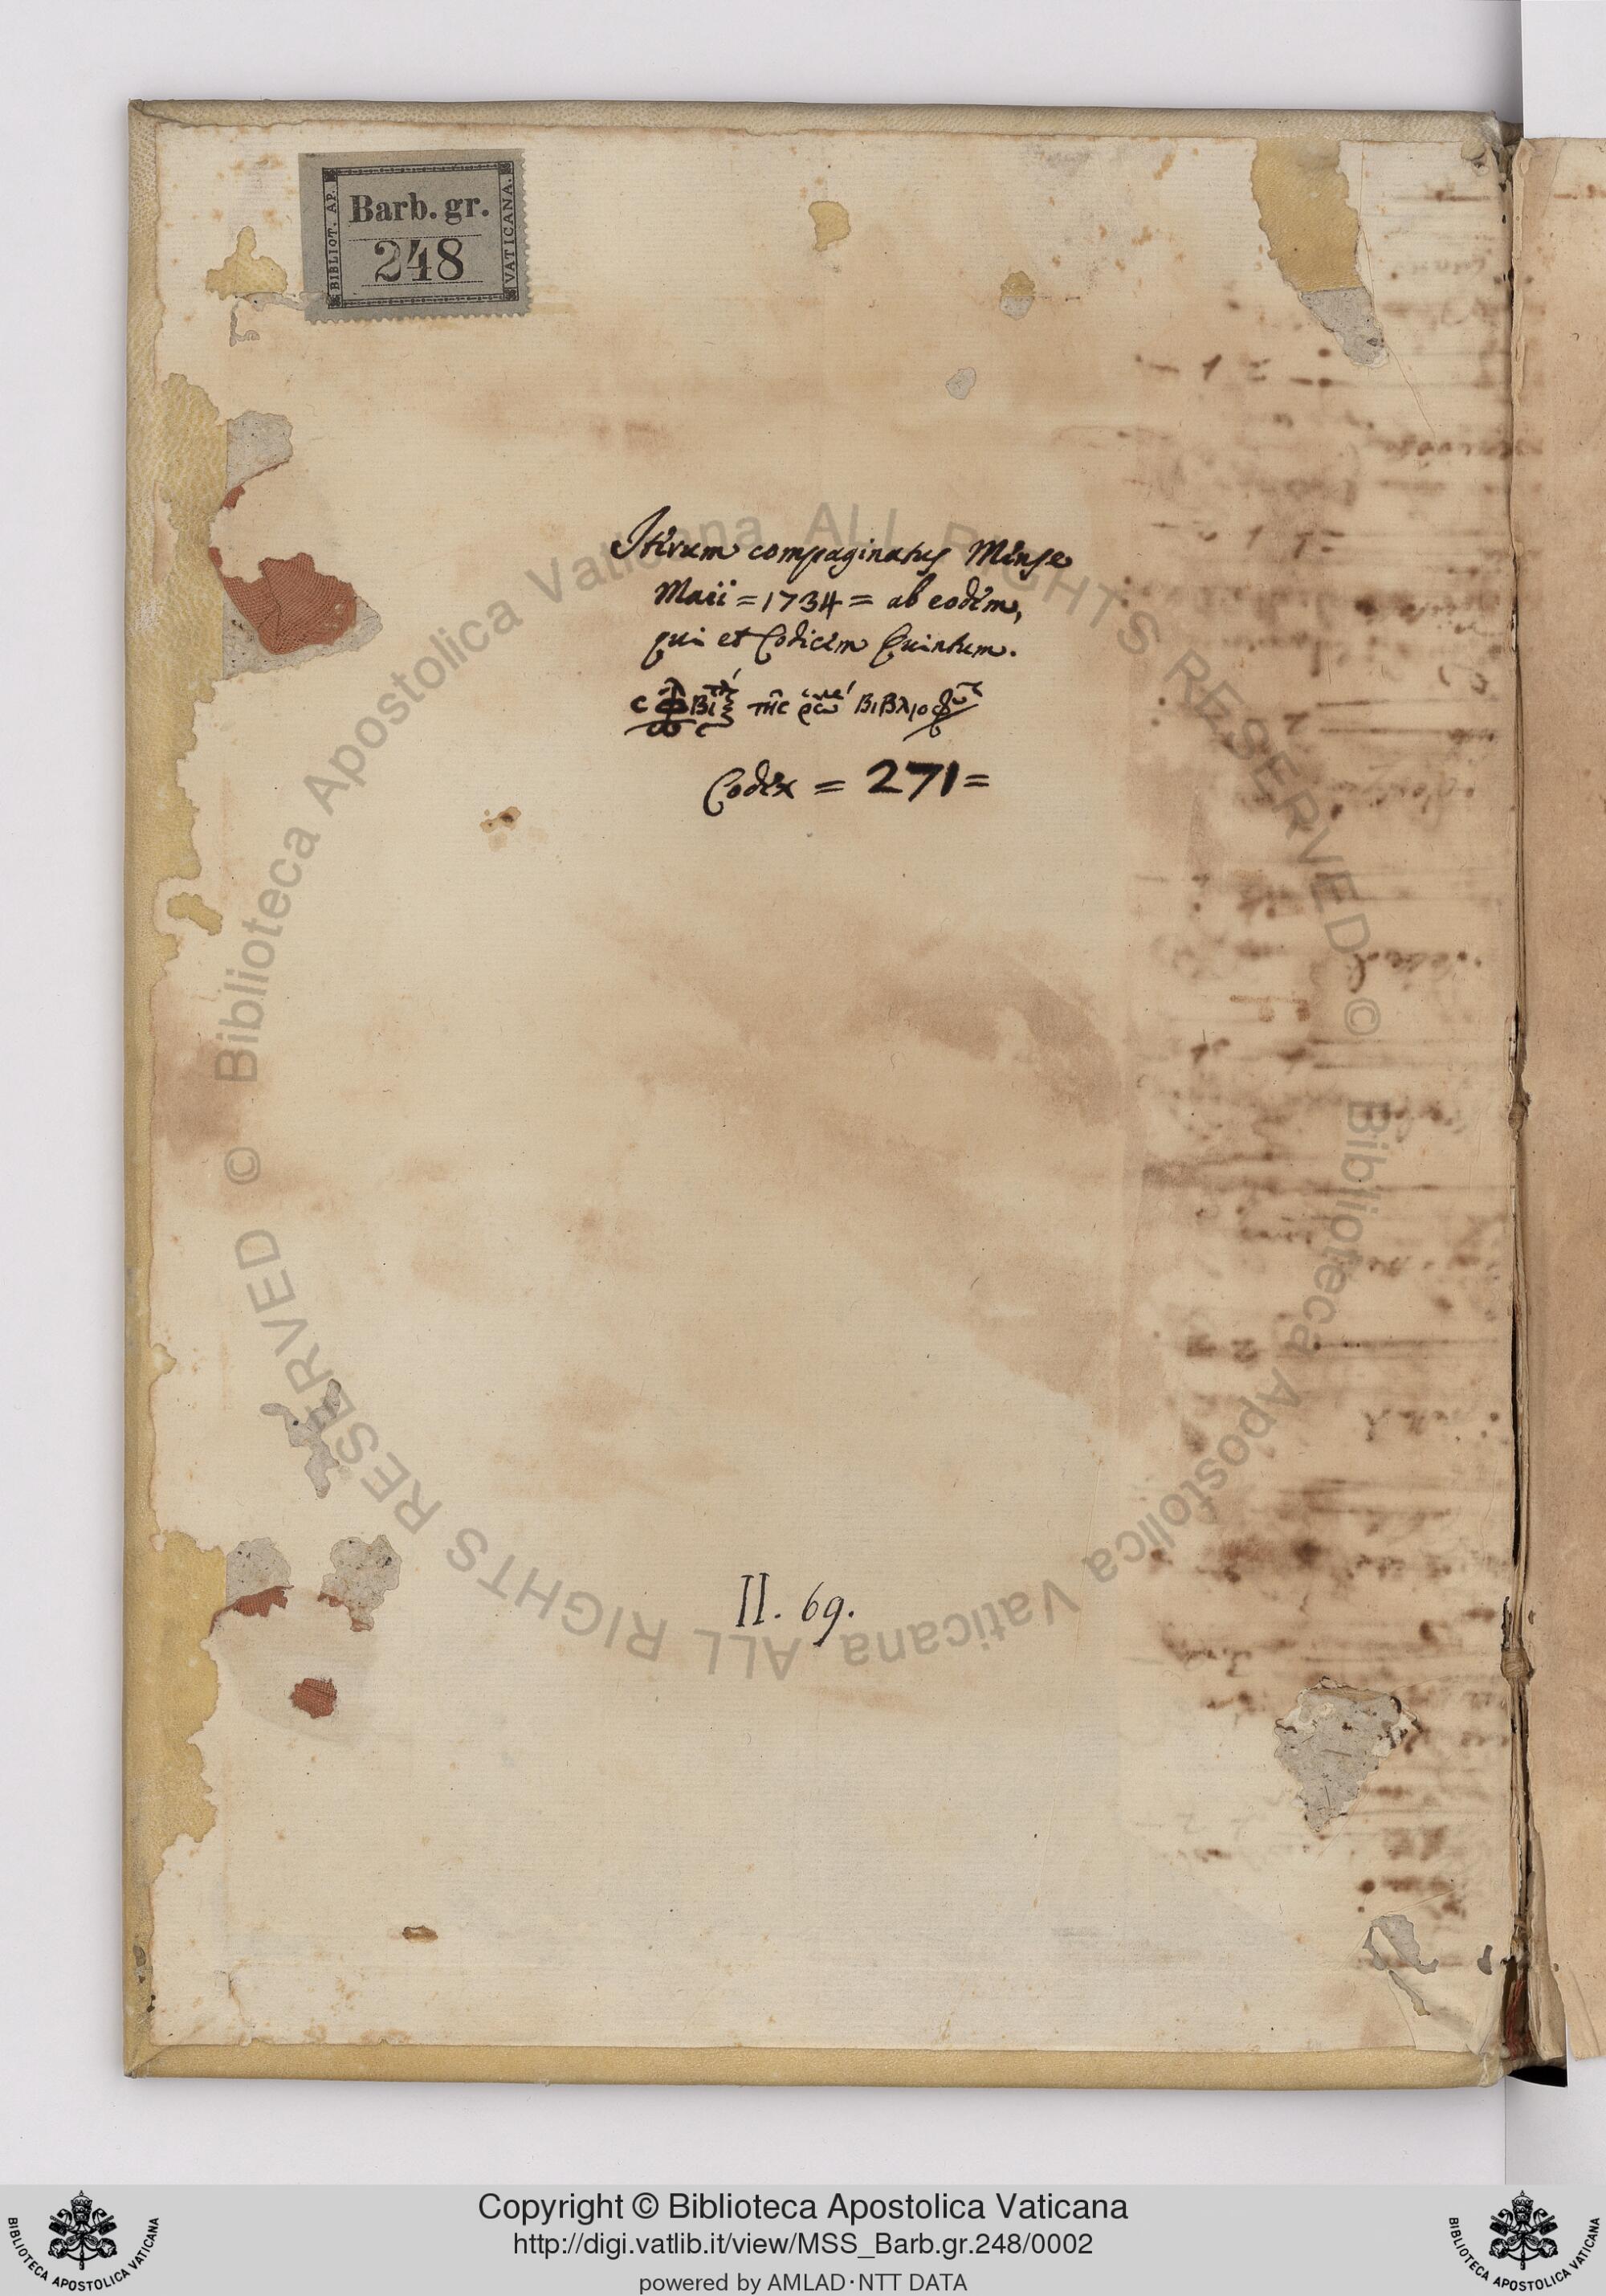 BIBLIOT. AP. VATICANA.
Barb. gr.
248
Iterum compaginatus Mense
Maii = 1734 = ab eodem,
qui et Codicem Quintum.
Codex = 271 =
II. 69.
© Biblioteca Apostolica Vaticana ALL RIGHTS RESERVED © Biblioteca Apostolica Vaticana ALL RIGHTS RESERVED
Copyright © Biblioteca Apostolica Vaticana
http://digi.vatlib.it/view/MSS_Barb.gr.248/0002
powered by AMLAD·NTT DATA
BIBLIOTECA APOSTOLICA VATICANA
BIBLIOTECA APOSTOLICA VATICANA